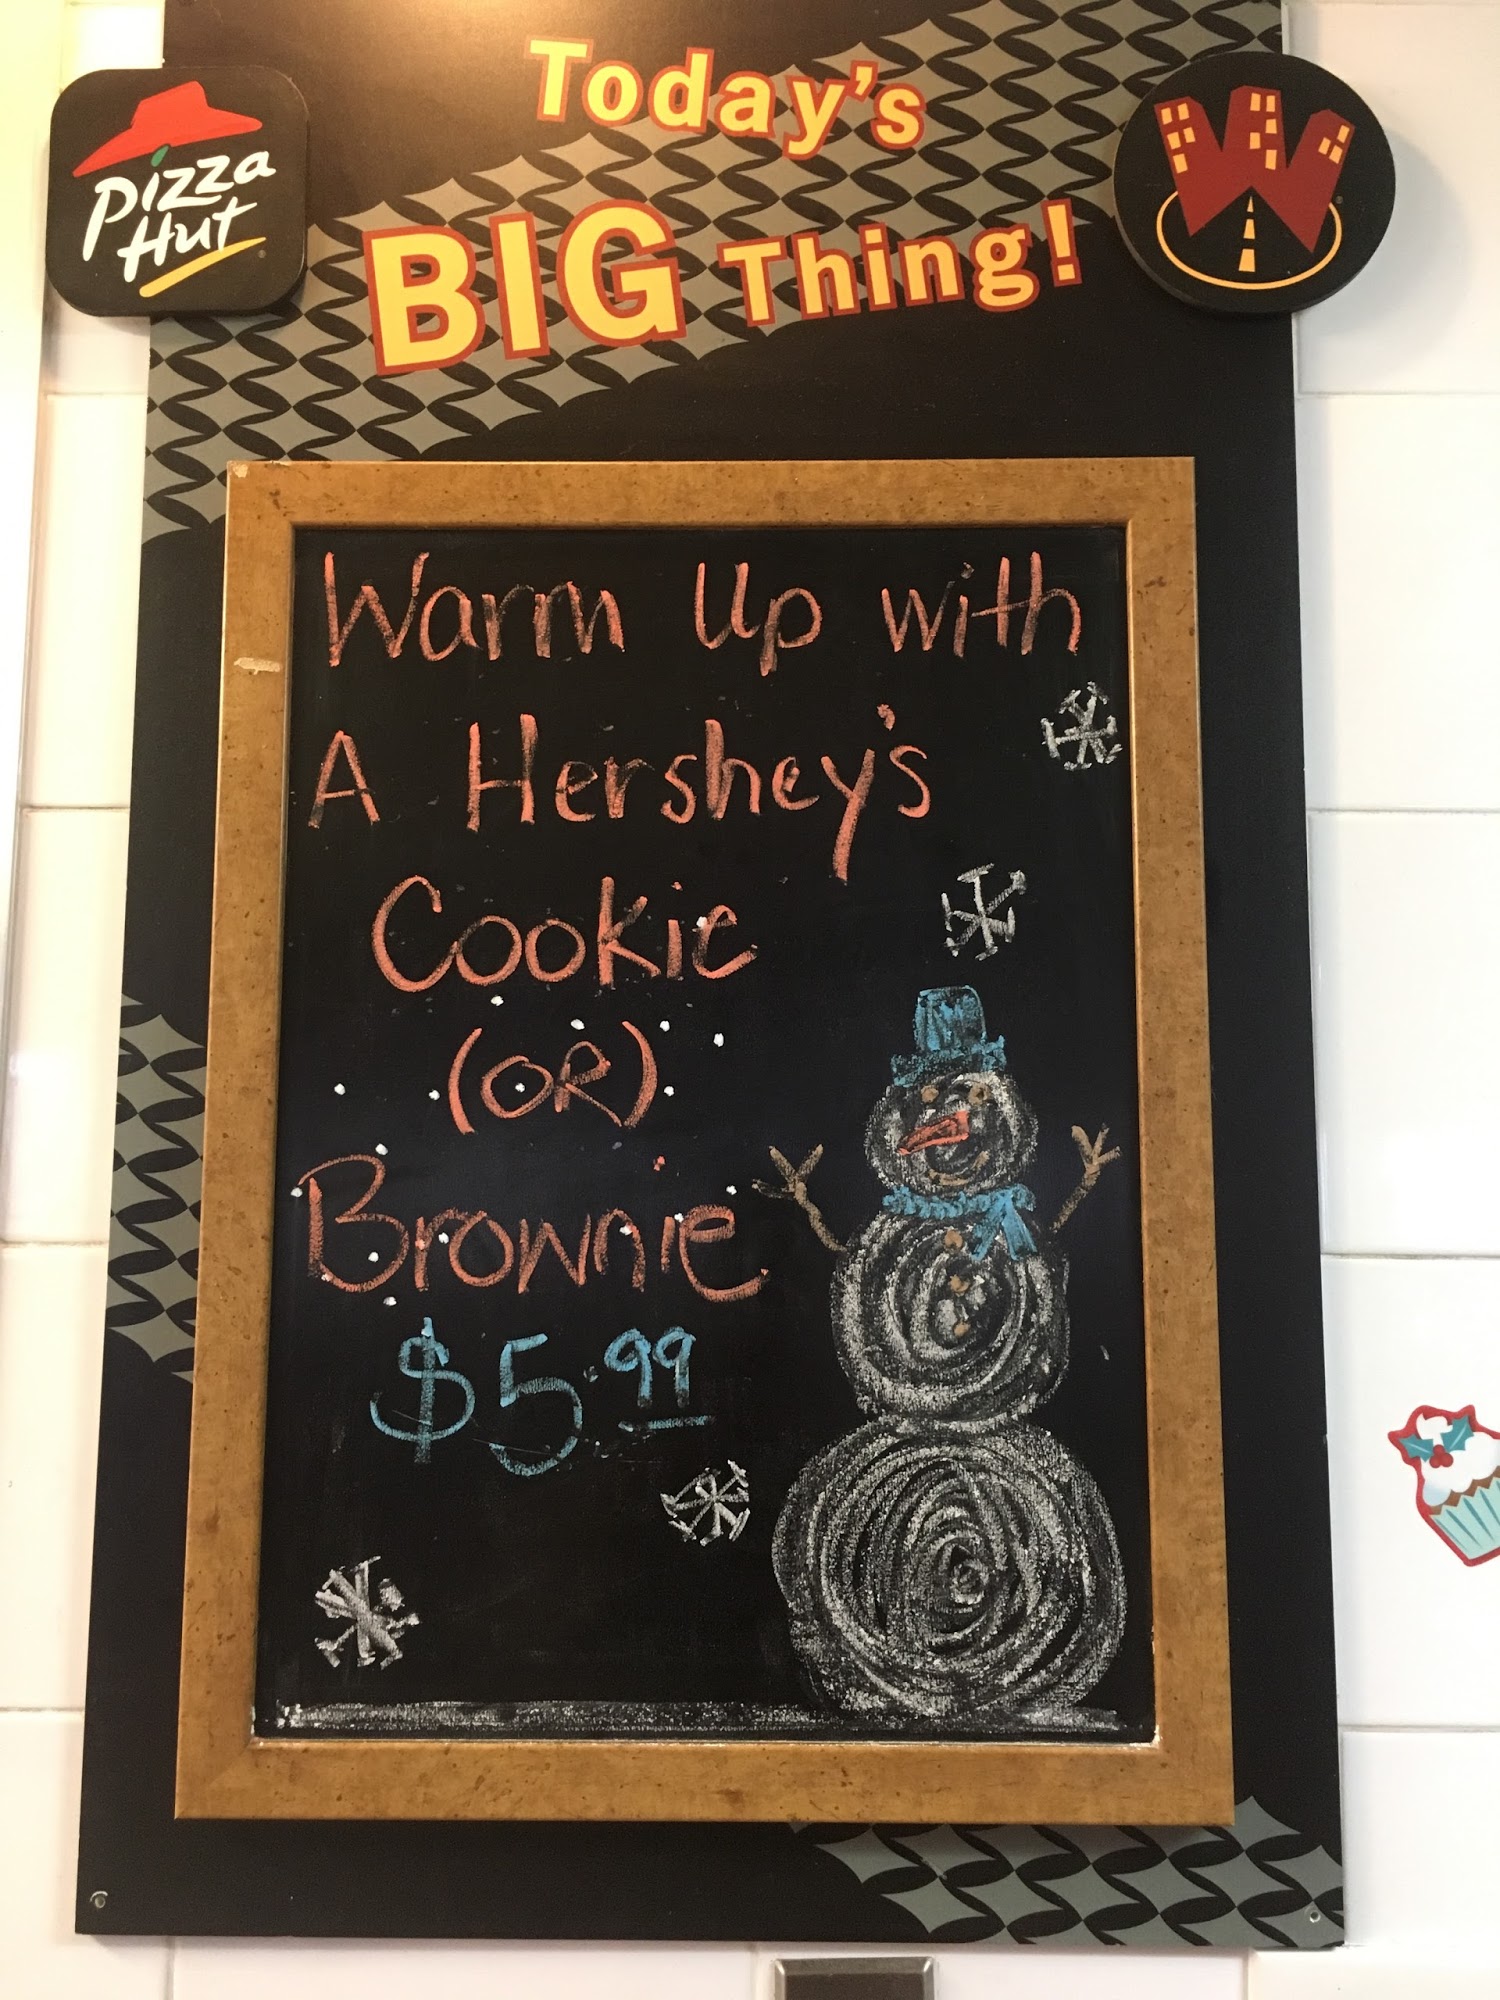 Pizza
Hut
Today's
BIG Thing!
W
Warm Up with
A Hershey's
Cookie
(OR)
Brownie
$5.99